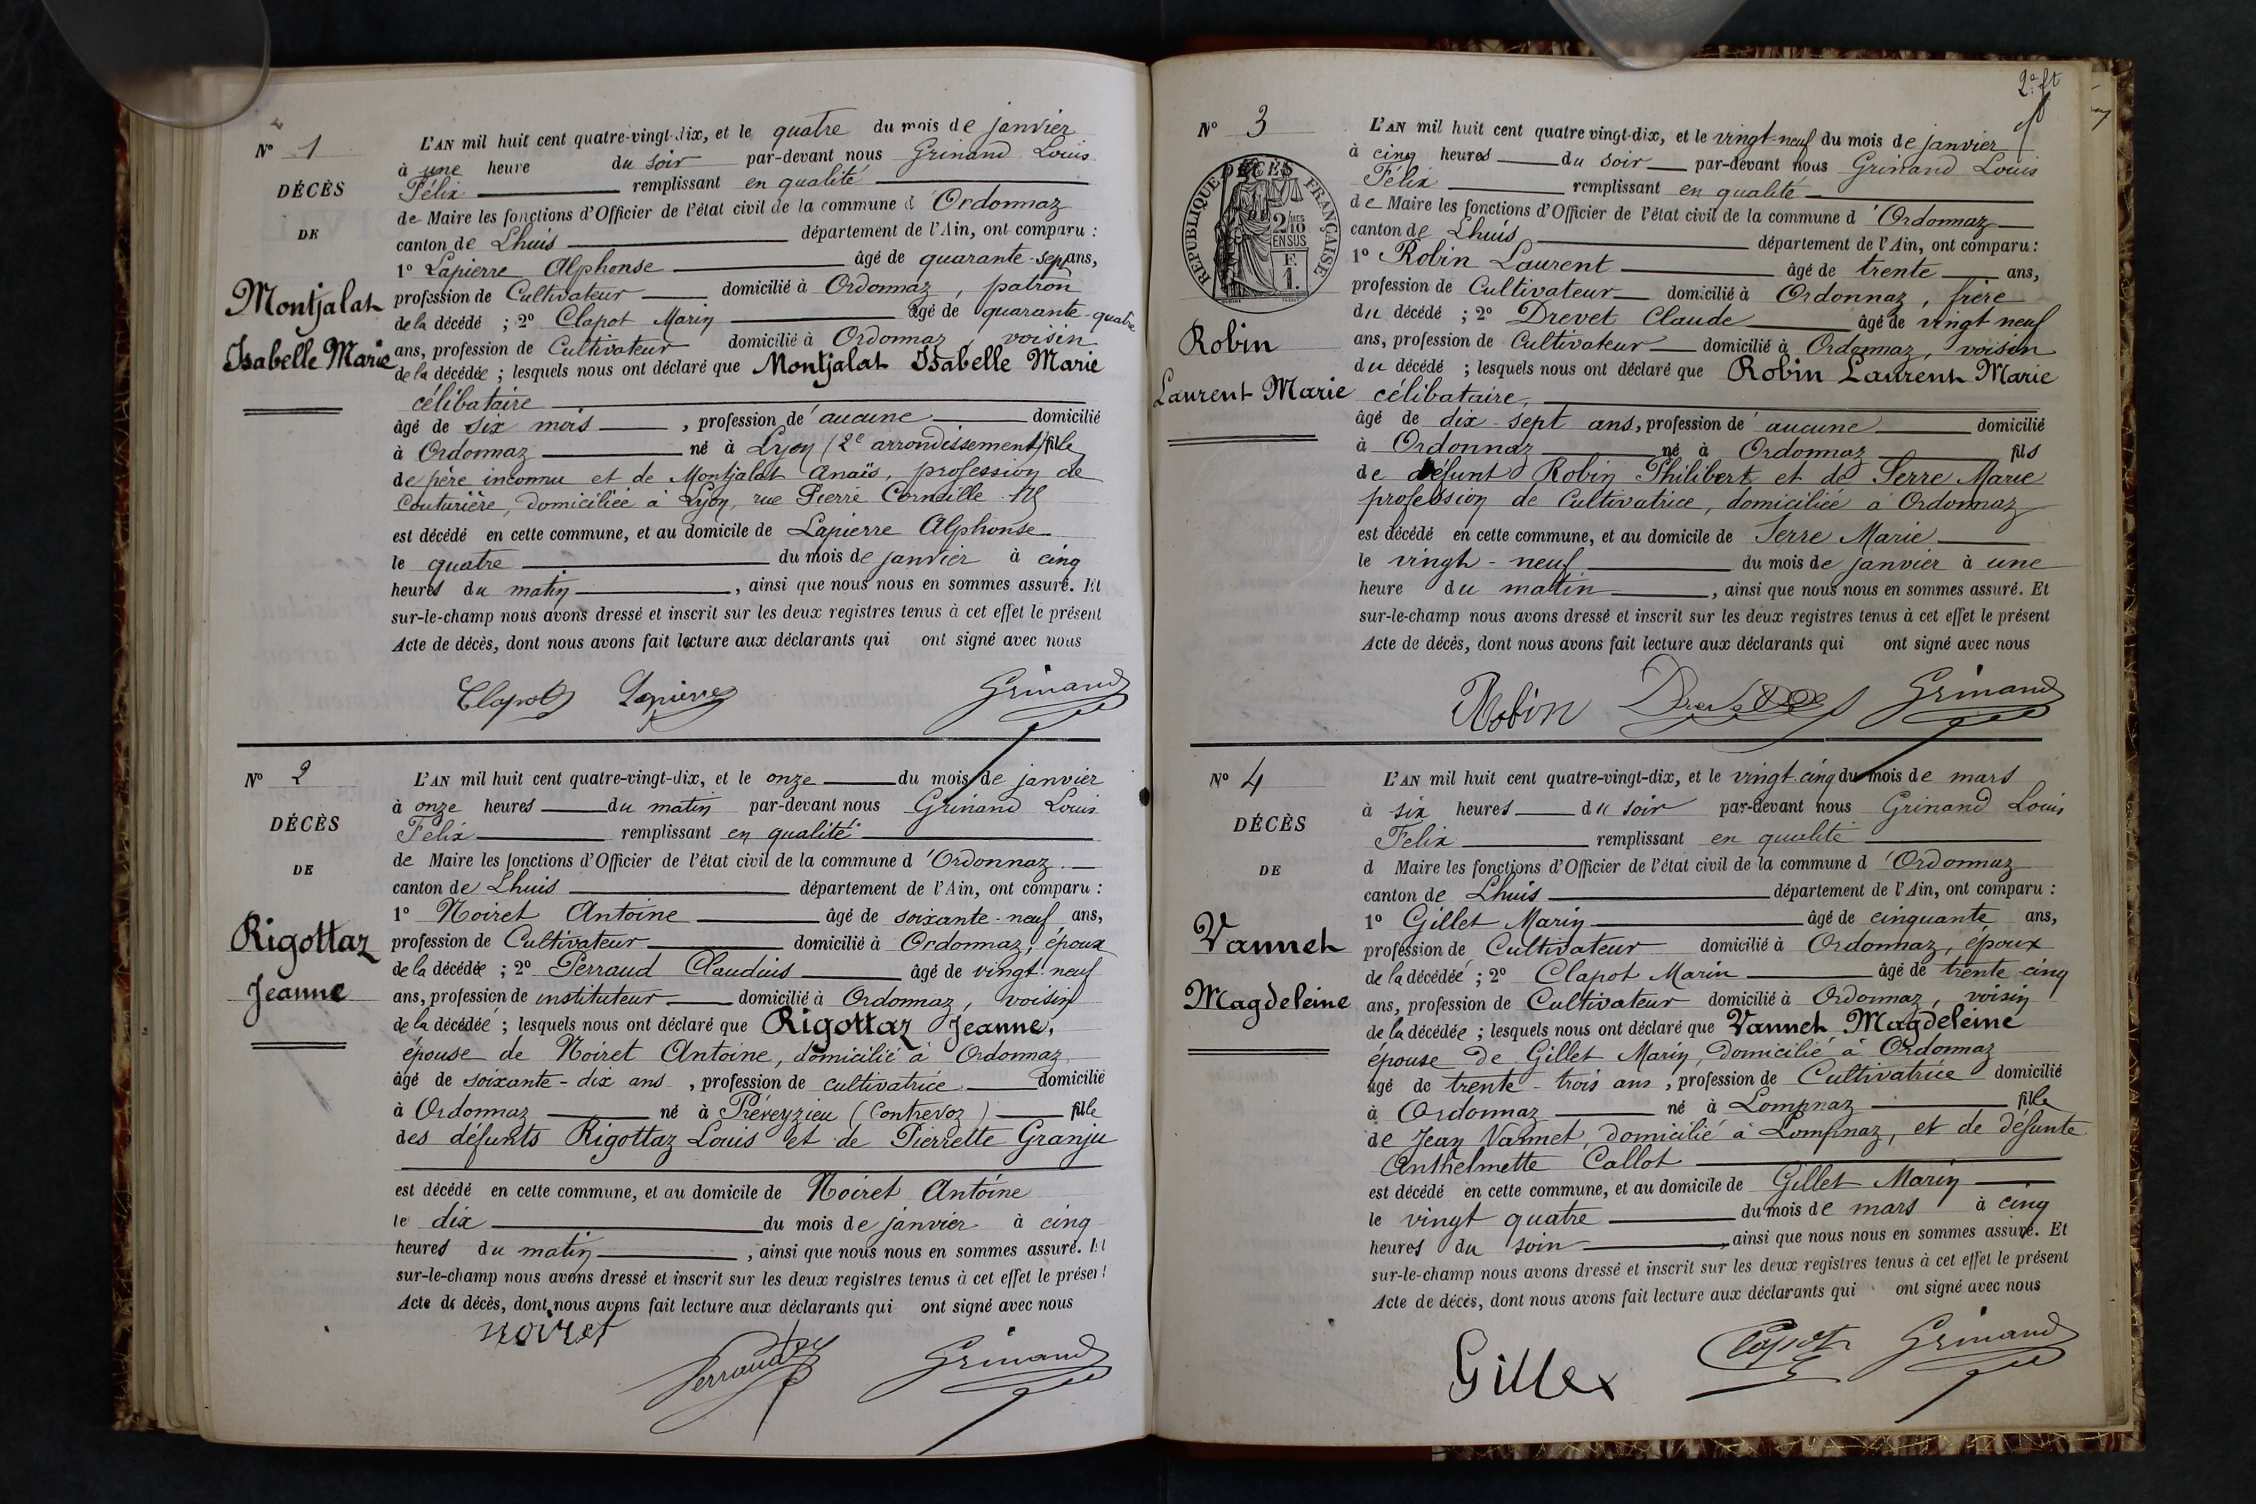 N° 1
DÉCÈS
DE
Montjalat
Isabelle Marie
L'AN mil huit cent quatre-vingt-dix, et le quatre du mois de janvier
à une heure du soir par-devant nous Grinand Louis
Félix remplissant en qualité
de Maire les fonctions d'Officier de l'état civil de la commune d'Ordonnaz
canton de Lhuis département de l'Ain, ont comparu :
1° Lapierre Alphonse âgé de quarante-sept ans,
profession de Cultivateur domicilié à Ordonnaz, patron
de la décédé ; 2° Clapot Marin âgé de quarante-quatre
ans, profession de Cultivateur domicilié à Ordonnaz, voisin
de la décédée ; lesquels nous ont déclaré que Montjalat Isabelle Marie
célibataire
âgé de six mois, profession de aucune domicilié
à Ordonnaz né à Lyon (2e arrondissement) fille
de père inconnu et de Montjalat Anaïs, profession de
Couturière, domiciliée à Lyon, rue Pierre Corneille
est décédé en cette commune, et au domicile de Lapierre Alphonse
le quatre du mois de janvier à cinq
heures du matin, ainsi que nous nous en sommes assuré. Et
sur-le-champ nous avons dressé et inscrit sur les deux registres tenus à cet effet le présent
Acte de décès, dont nous avons fait lecture aux déclarants qui ont signé avec nous
Clapot Lapierre Grinand
N° 2
DÉCÈS
DE
Rigottaz
Jeanne
L'AN mil huit cent quatre-vingt-dix, et le onze du mois de janvier
à onze heures du matin par-devant nous Grinand Louis
Félix remplissant en qualité
de Maire les fonctions d'Officier de l'état civil de la commune d'Ordonnaz
canton de Lhuis département de l'Ain, ont comparu :
1° Noiret Antoine âgé de soixante-neuf ans,
profession de Cultivateur domicilié à Ordonnaz, époux
de la décédée ; 2° Perraud Claudius âgé de vingt-neuf
ans, profession de instituteur domicilié à Ordonnaz, voisin
de la décédée ; lesquels nous ont déclaré que Rigottaz Jeanne,
épouse de Noiret Antoine, domicilié à Ordonnaz
âgé de soixante-dix ans, profession de cultivatrice domicilié
à Ordonnaz né à Préveyzieu (Contrevoz) fille
des défunts Rigottaz Louis et de Pierrette Granju
est décédé en cette commune, et au domicile de Noiret Antoine
le dix du mois de janvier à cinq
heures du matin, ainsi que nous nous en sommes assuré. Et
sur-le-champ nous avons dressé et inscrit sur les deux registres tenus à cet effet le présent
Acte de décès, dont nous avons fait lecture aux déclarants qui ont signé avec nous
noiret Perraud Grinand
N° 3
DÉCÈS
RÉPUBLIQUE FRANÇAISE
2/10 EN SUS
F. 1.
Robin
Laurent Marie
L'AN mil huit cent quatre vingt-dix, et le vingt-neuf du mois de janvier
à cinq heures du soir par-devant nous Grinand Louis
Félix remplissant en qualité
de Maire les fonctions d'Officier de l'état civil de la commune d'Ordonnaz
canton de Lhuis département de l'Ain, ont comparu :
1° Robin Laurent âgé de trente ans,
profession de Cultivateur domicilié à Ordonnaz, frère
du décédé ; 2° Drevet Claude âgé de vingt neuf
ans, profession de Cultivateur domicilié à Ordonnaz, voisin
du décédé ; lesquels nous ont déclaré que Robin Laurent Marie
célibataire,
âgé de dix-sept ans, profession de aucune domicilié
à Ordonnaz né à Ordonnaz fils
de défunt Robin Philibert et de Serre Marie
profession de Cultivatrice, domiciliée à Ordonnaz
est décédé en cette commune, et au domicile de Serre Marie
le vingt-neuf du mois de janvier à une
heure du matin, ainsi que nous nous en sommes assuré. Et
sur-le-champ nous avons dressé et inscrit sur les deux registres tenus à cet effet le présent
Acte de décès, dont nous avons fait lecture aux déclarants qui ont signé avec nous
Robin Drevet Grinand
N° 4
DÉCÈS
DE
Vannet
Magdeleine
L'AN mil huit cent quatre-vingt-dix, et le vingt-cinq du mois de mars
à six heures du soir par-devant nous Grinand Louis
Felix remplissant en qualité
d Maire les fonctions d'Officier de l'état civil de la commune d'Ordonnaz
canton de Lhuis département de l'Ain, ont comparu :
1° Gillet Marin âgé de cinquante ans,
profession de Cultivateur domicilié à Ordonnaz, époux
de la décédée ; 2° Clapot Marin âgé de trente-cinq
ans, profession de Cultivateur domicilié à Ordonnaz, voisin
de la décédée ; lesquels nous ont déclaré que Vannet Magdeleine
épouse de Gillet Marin, domicilié à Ordonnaz
âgé de trente-trois ans, profession de Cultivatrice domicilié
à Ordonnaz né à Lompnaz fille
de Jean Vannet, domicilié à Lompnaz, et de défunte
Anthelmette Callot
est décédé en cette commune, et au domicile de Gillet Marin
le vingt quatre du mois de mars à cinq
heures du soir, ainsi que nous nous en sommes assuré. Et
sur-le-champ nous avons dressé et inscrit sur les deux registres tenus à cet effet le présent
Acte de décès, dont nous avons fait lecture aux déclarants qui ont signé avec nous
Gillet Clapot Grinand